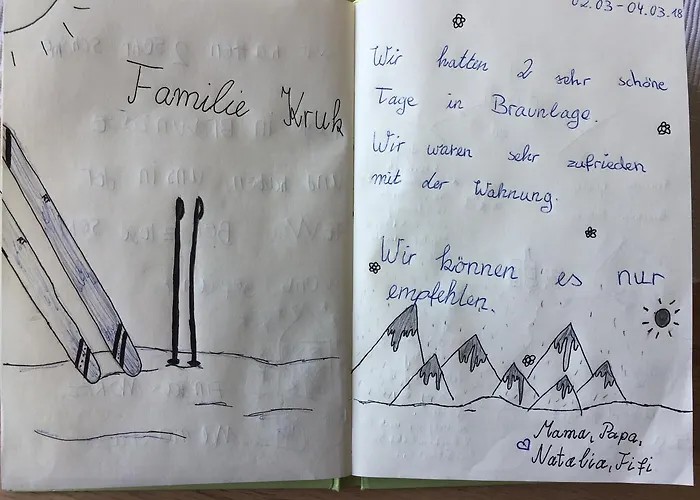 Familie Kruk
02.03-04.03.18
Wir hatten 2 sehr schöne
Tage in Braunlage.
Wir waren sehr zufrieden
mit der Wohnung.
Wir können es nur
empfehlen.
Mama, Papa,
Natalia, Fifi